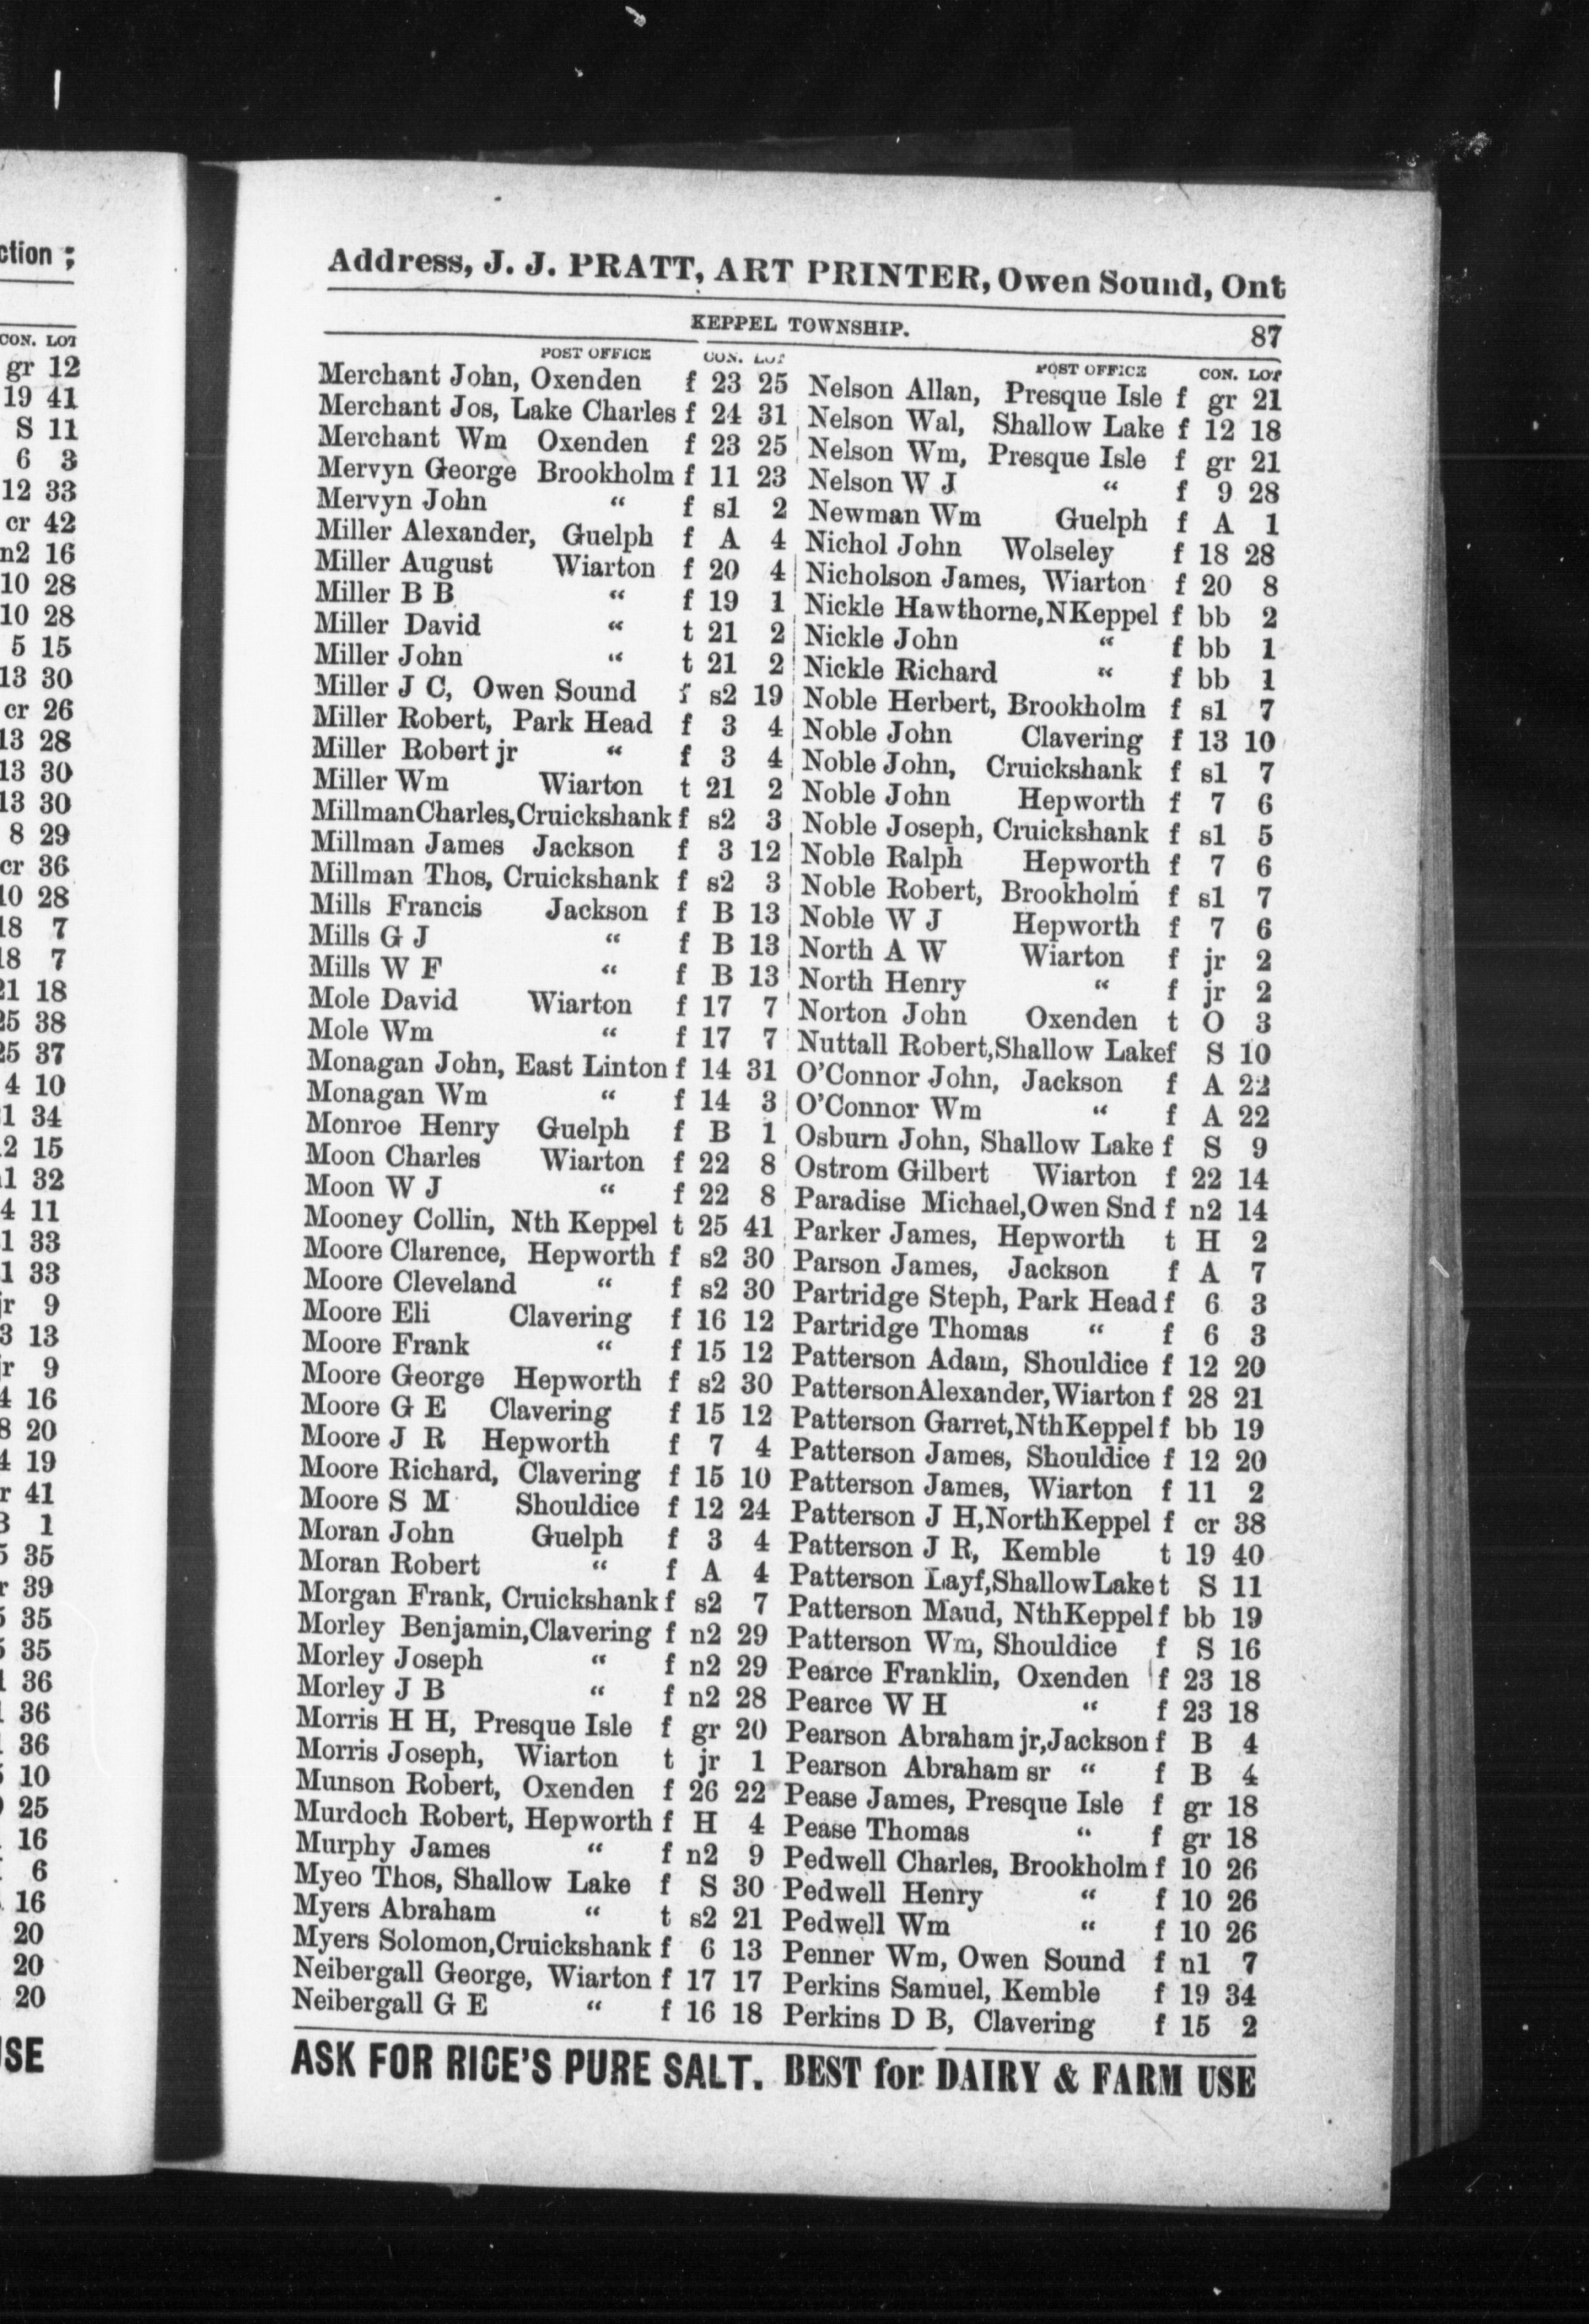 ction ;
CON. LOT
gr 12
19 41
S 11
6 3
12 33
cr 42
n2 16
10 28
10 28
5 15
13 30
cr 26
13 28
13 30
13 30
8 29
cr 36
10 28
18 7
18 7
21 18
25 38
25 37
4 10
1 34
2 15
1 32
4 11
1 33
1 33
jr 9
3 13
jr 9
4 16
8 20
4 19
r 41
3 1
5 35
r 39
5 35
5 35
1 36
36
36
10
25
16
6
16
20
20
20
USE
Address, J. J. PRATT, ART PRINTER, Owen Sound, Ont
KEPPEL TOWNSHIP. 87
POST OFFICE CON. LOT
Merchant John, Oxenden f 23 25
Merchant Jos, Lake Charles f 24 31
Merchant Wm Oxenden f 23 25
Mervyn George Brookholm f 11 23
Mervyn John “ f s1 2
Miller Alexander, Guelph f A 4
Miller August Wiarton f 20 4
Miller B B “ f 19 1
Miller David “ t 21 2
Miller John “ t 21 2
Miller J C, Owen Sound f s2 19
Miller Robert, Park Head f 3 4
Miller Robert jr “ f 3 4
Miller Wm Wiarton t 21 2
MillmanCharles,Cruickshank f s2 3
Millman James Jackson f 3 12
Millman Thos, Cruickshank f s2 3
Mills Francis Jackson f B 13
Mills G J “ f B 13
Mills W F “ f B 13
Mole David Wiarton f 17 7
Mole Wm “ f 17 7
Monagan John, East Linton f 14 31
Monagan Wm “ f 14 3
Monroe Henry Guelph f B 1
Moon Charles Wiarton f 22 8
Moon W J “ f 22 8
Mooney Collin, Nth Keppel t 25 41
Moore Clarence, Hepworth f s2 30
Moore Cleveland “ f s2 30
Moore Eli Clavering f 16 12
Moore Frank “ f 15 12
Moore George Hepworth f s2 30
Moore G E Clavering f 15 12
Moore J R Hepworth f 7 4
Moore Richard, Clavering f 15 10
Moore S M Shouldice f 12 24
Moran John Guelph f 3 4
Moran Robert “ f A 4
Morgan Frank, Cruickshank f s2 7
Morley Benjamin,Clavering f n2 29
Morley Joseph “ f n2 29
Morley J B “ f n2 28
Morris H H, Presque Isle f gr 20
Morris Joseph, Wiarton t jr 1
Munson Robert, Oxenden f 26 22
Murdoch Robert, Hepworth f H 4
Murphy James “ f n2 9
Myeo Thos, Shallow Lake f S 30
Myers Abraham “ t s2 21
Myers Solomon,Cruickshank f 6 13
Neibergall George, Wiarton f 17 17
Neibergall G E “ f 16 18
POST OFFICE CON. LOT
Nelson Allan, Presque Isle f gr 21
Nelson Wal, Shallow Lake f 12 18
Nelson Wm, Presque Isle f gr 21
Nelson W J “ f 9 28
Newman Wm Guelph f A 1
Nichol John Wolseley f 18 28
Nicholson James, Wiarton f 20 8
Nickle Hawthorne,NKeppel f bb 2
Nickle John “ f bb 1
Nickle Richard “ f bb 1
Noble Herbert, Brookholm f s1 7
Noble John Clavering f 13 10
Noble John, Cruickshank f s1 7
Noble John Hepworth f 7 6
Noble Joseph, Cruickshank f s1 5
Noble Ralph Hepworth f 7 6
Noble Robert, Brookholm f s1 7
Noble W J Hepworth f 7 6
North A W Wiarton f jr 2
North Henry “ f jr 2
Norton John Oxenden t O 3
Nuttall Robert,Shallow Lakef S 10
O'Connor John, Jackson f A 22
O'Connor Wm “ f A 22
Osburn John, Shallow Lake f S 9
Ostrom Gilbert Wiarton f 22 14
Paradise Michael,Owen Snd f n2 14
Parker James, Hepworth t H 2
Parson James, Jackson f A 7
Partridge Steph, Park Head f 6 3
Partridge Thomas “ f 6 3
Patterson Adam, Shouldice f 12 20
PattersonAlexander,Wiarton f 28 21
Patterson Garret,NthKeppel f bb 19
Patterson James, Shouldice f 12 20
Patterson James, Wiarton f 11 2
Patterson J H,NorthKeppel f cr 38
Patterson J R, Kemble t 19 40
Patterson Layf,ShallowLake t S 11
Patterson Maud, NthKeppel f bb 19
Patterson Wm, Shouldice f S 16
Pearce Franklin, Oxenden f 23 18
Pearce W H “ f 23 18
Pearson Abraham jr,Jackson f B 4
Pearson Abraham sr “ f B 4
Pease James, Presque Isle f gr 18
Pease Thomas “ f gr 18
Pedwell Charles, Brookholm f 10 26
Pedwell Henry “ f 10 26
Pedwell Wm “ f 10 26
Penner Wm, Owen Sound f n1 7
Perkins Samuel, Kemble f 19 34
Perkins D B, Clavering f 15 2
ASK FOR RICE'S PURE SALT. BEST for DAIRY & FARM USE